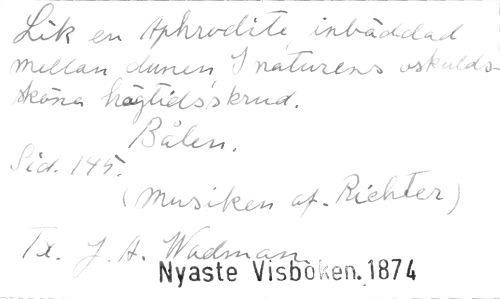 Lik en Aphrodite, inbäddad
mellan dunen I naturens oskulds-
sköna högtidsskrud.
Bålen.
Sid. 145.
(Musiken af. Richter)
Tx. J. A. Wadman.
Nyaste Visboken. 1874